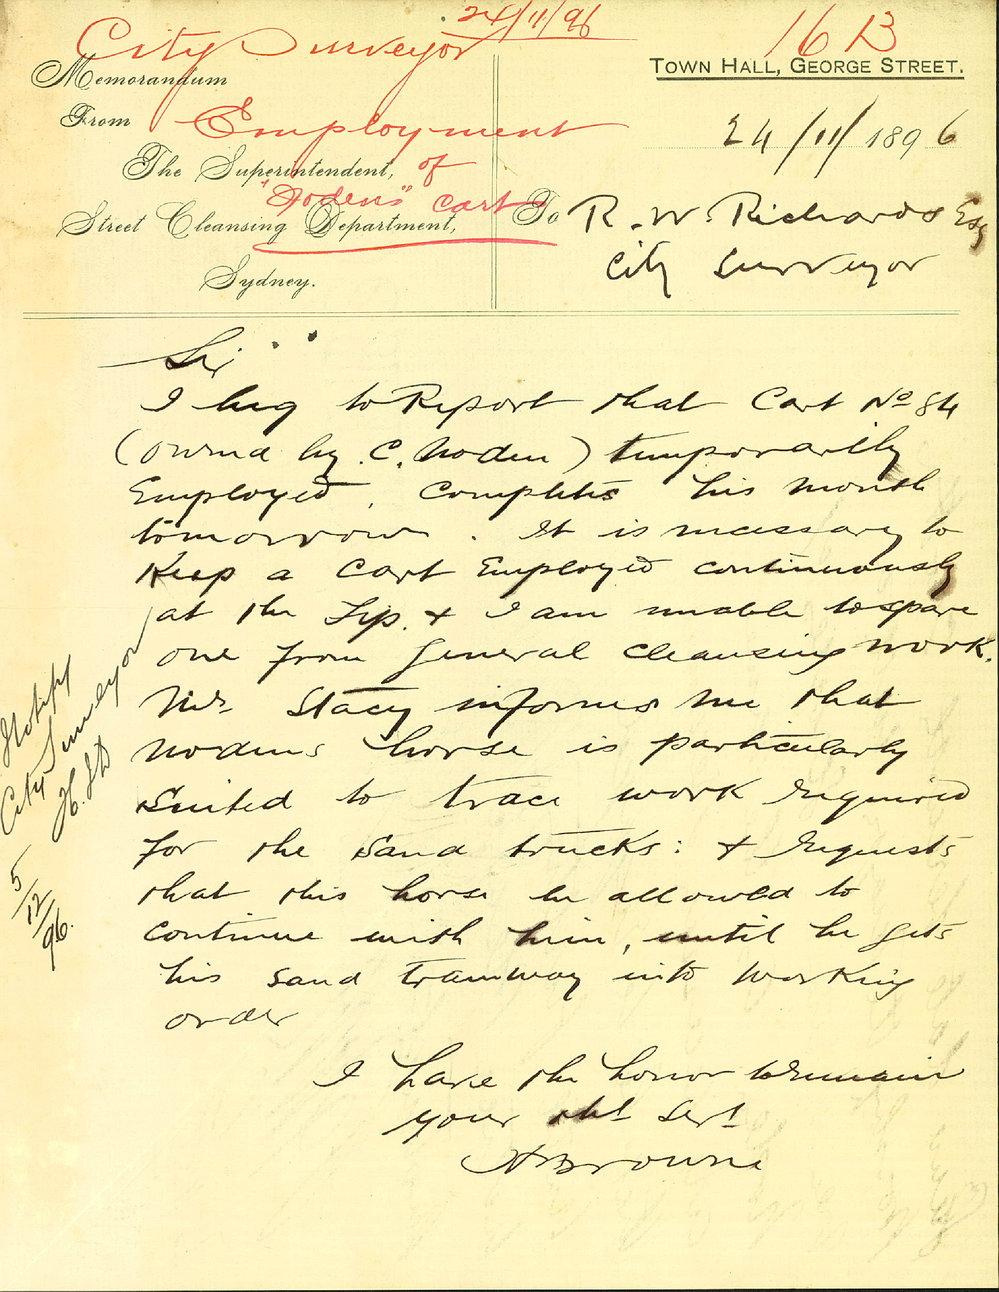 City Surveyor 24/11/96
16 B
Memorandum
From
Employment
The Superintendent,
of
"Nodens" Cart
Street Cleansing Department,
Sydney.
TOWN HALL, GEORGE STREET.
24/11/1896
To R. W. Richards Esq
City Surveyor
Sir
I beg to Report that Cart No 84
(owned by C. Noden) temporarily
Employed, completes his month
tomorrow. It is necessary to
Keep a Cart Employed continuously
at the Tip. & I am unable to spare
one from General Cleansing work.
Mr Stacy informs me that
Nodens horse is particularly
Suited to trace work required
for the Sand trucks: & requests
that this horse be allowed to
continue with him, until he gets
his Sand tramway into working
order
I have the honor to remain
your obt Servt
Browne
Notify
City Surveyor
5/12/96.